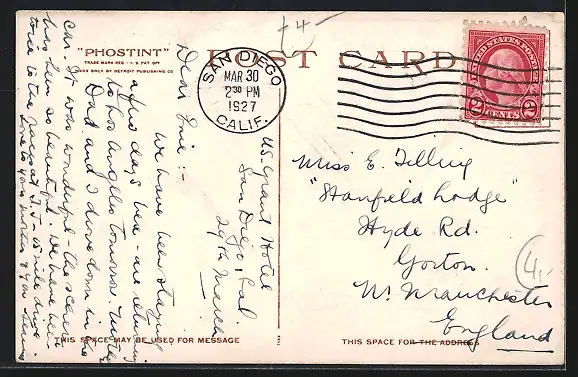 £4-
"PHOSTINT"
POST CARD
TRADE MARK REG. U S PAT OFF
MADE ONLY BY DETROIT PUBLISHING CO
SAN DIEGO
MAR 30
2 30 PM
1927
CALIF.
UNITED STATES POSTAGE
2 CENTS 2
U.S. Grant Hotel
San Diego, Cal.
29th March
Dear Evie :-
We have been staying
a few days here - are returning
to Los Angeles tomorrow. Uncle,
Dad and I drove down in the
car. It was wonderful - the scenery
has been so beautiful. We have been
twice to the races at T.J. - 15 mile drive.
Love to your mother & you
Miss E. Tilling
"Stanfield Lodge"
Hyde Rd.
Gorton.
Nr. Manchester
England
4,-
THIS SPACE MAY BE USED FOR MESSAGE
THIS SPACE FOR THE ADDRESS